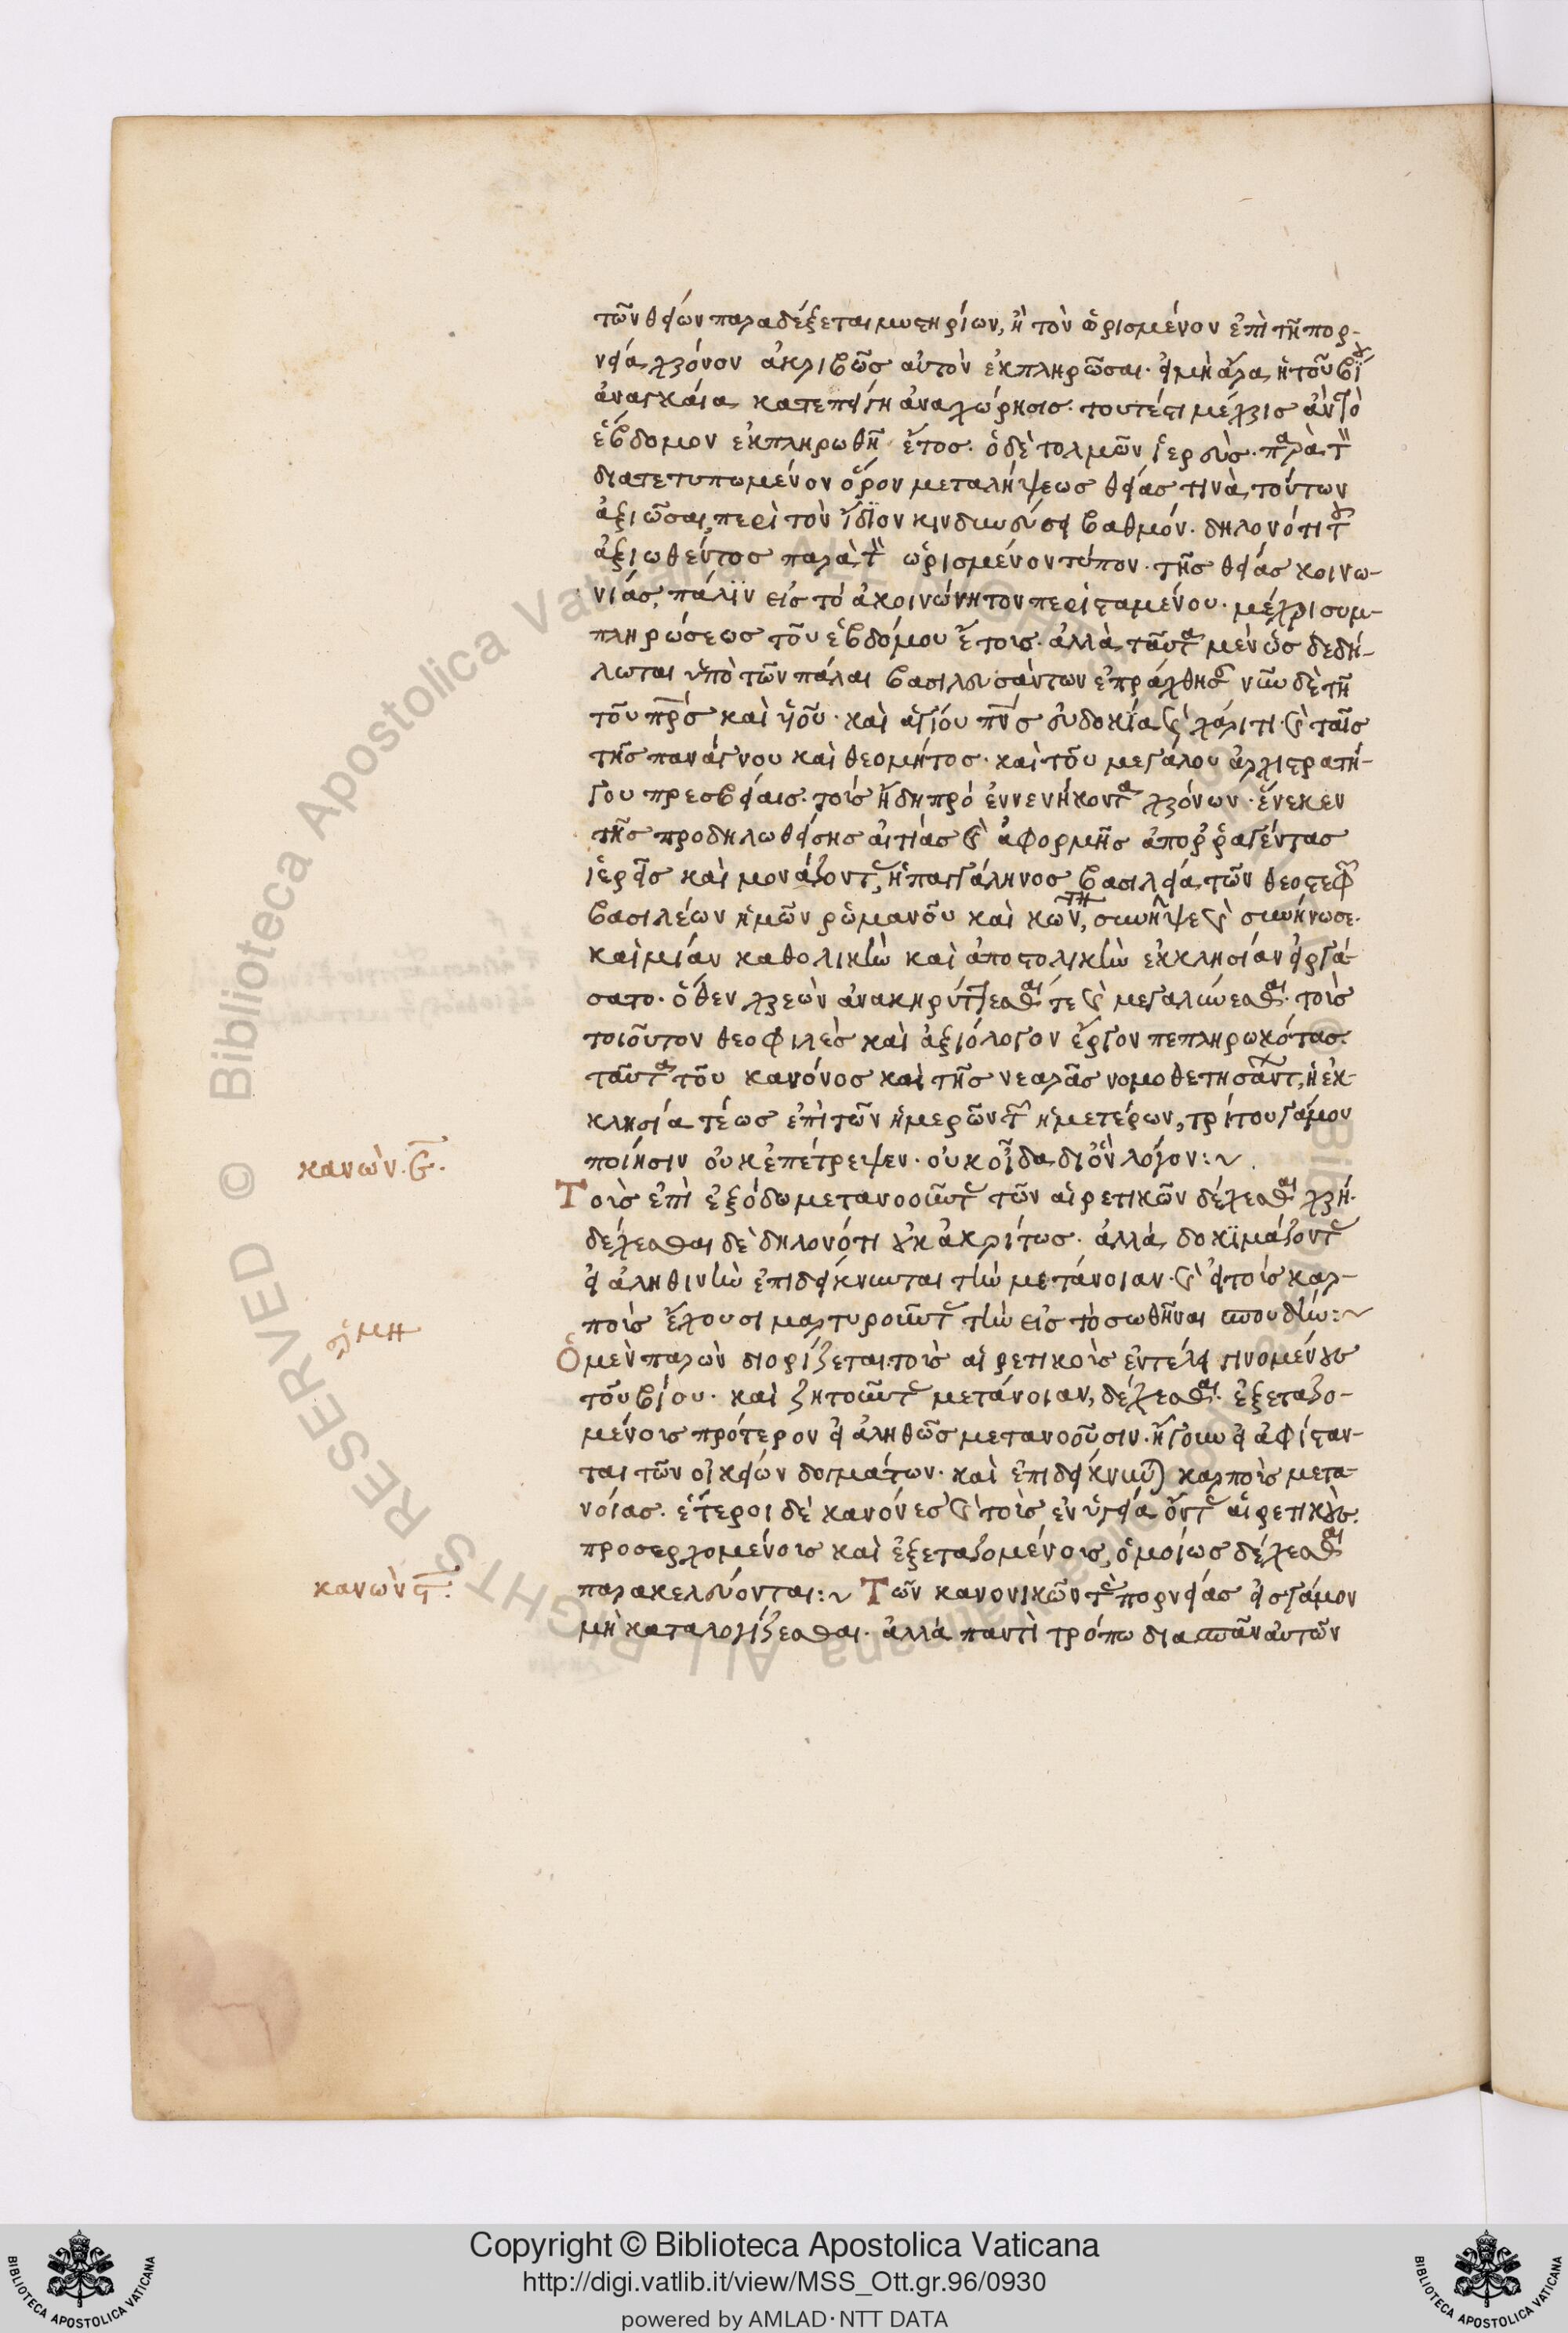 τῶν θείων παραδέξεται μυστηρίων, ἢ τὸν ὡρισμένον ἐπὶ τῇ πορ-
νεία χρόνον ἀκριβῶς αὐτὸν ἐκπληρῶσαι· εἰ μὴ ἄρα ἡ τοῦ βίου
ἀναγκαία κατεπείγῃ ἀναχώρησις· τουτέστι μέχρις ἂν τὸ
ἕβδομον ἐκπληρωθῇ ἔτος· ὁ δὲ τολμῶν ἱερεὺς παρὰ τὸν
διατετυπωμένον ὅρον μεταλήψεως θείας τινὰ τούτων
ἀξιῶσαι, περὶ τὸν ἴδϊον κινδυνεύσει βαθμόν· δηλονότι τοῦ
ἀξιωθέντος παρὰ τὸν ὡρισμένον τύπον τῆς θείας κοινω-
νίας, πάλϊν εἰς τὸ ἀκοινώνητον περϊσταμένου· μέχρι συμ-
πληρώσεως τοῦ ἑβδόμου ἔτους· ἀλλὰ ταῦτα μὲν ὡς δεδή-
λωται ὑπὸ τῶν πάλαι βασιλευσάντων ἐπράχθησαν νῦν δὲ τῇ
τοῦ πρς καὶ υἱοῦ· καὶ ἁγίου πνς εὐδοκία καὶ χάριτι· καὶ ταῖς
τῆς πανάγνου καὶ θεομήτος· καὶ τοῦ μεγάλου ἀρχιστρατή-
γου πρεσβείαις· τοὺς ἤδη πρὸ ἐννενήκοντα χρόνων· ἕνεκεν
τῆς προδηλωθείσης αἰτίας καὶ ἀφορμῆς ἀποῤῥαγέντας
ἱερεῖς καὶ μονάζοντας, ἡ παγγάληνος βασιλεία τῶν θεοστεφῶν
βασιλέων ἡμῶν ῥωμανοῦ καὶ κων, συνῆψε καὶ συνήνωσε·
καὶ μίαν καθολικὴν καὶ ἀποστολικὴν ἐκκλησίαν εἰργά-
σατο· ὅθεν χρεὼν ἀνακηρύττεσθαί τε καὶ μεγαλύνεσθαι· τοὺς
τοιοῦτον θεοφιλὲς καὶ ἀξιόλογον ἔργον πεπληρωκότας.
ταῦτα τοῦ κανόνος καὶ τῆς νεαρᾶς νομοθετησάντων, ἡ ἐκ-
κλησία τέως ἐπὶ τῶν ἡμερῶν τῶν ἡμετέρων, τρίτου γάμου
ποίησιν οὐκ ἐπέτρεψεν· οὐκ οἶδα δι ὃν λόγον:~
κανὼν. ε.
Τοὺς ἐπὶ ἐξόδω μετανοοῦντας τῶν αἱρετικῶν δέχεσθαι χρή·
δέχεσθαι δὲ δηλονότι οὐκ ἀκρίτως· ἀλλὰ δοκϊμάζοντας
εἰ ἀληθινὴν ἐπιδείκνυνται τὴν μετάνοιαν· καὶ εἰ τοὺς καρ-
ποὺς ἔχουσι μαρτυροῦντας τὴν εἰς τὸ σωθῆναι σπουδήν:~
ἑρμη
Ὁ μὲν παρὼν διορίζεται τοὺς αἱρετικοὺς ἐν τέλει γινομένους
τοῦ βίου· καὶ ζητοῦντας μετάνοιαν, δέχεσθαι· ἐξεταζο-
μένους πρότερον εἰ ἀληθῶς μετανοοῦσιν· ἤγουν εἰ ἀφίσταν-
ται τῶν οἰκείων δογμάτων· καὶ ἐπιδείκνυνται καρποὺς μετα-
νοίας· ἕτεροι δὲ κανόνες καὶ τοὺς ἐν ὑγεία ὄντας αἱρετικοὺς·
προσερχομένους καὶ ἐξεταζομένους, ὁμοίως δέχεσθαι
παρακελεύονται:~ Τῶν κανονικῶν τὰς πορνείας εἰς γάμον
κανὼν ς:
μὴ καταλογίζεσθαι· ἀλλὰ παντὶ τρόπω διασπᾶν αὐτῶν
Copyright © Biblioteca Apostolica Vaticana
http://digi.vatlib.it/view/MSS_Ott.gr.96/0930
powered by AMLAD·NTT DATA
BIBLIOTECA APOSTOLICA VATICANA
BIBLIOTECA APOSTOLICA VATICANA
© Biblioteca Apostolica Vaticana ALL RIGHTS RESERVED